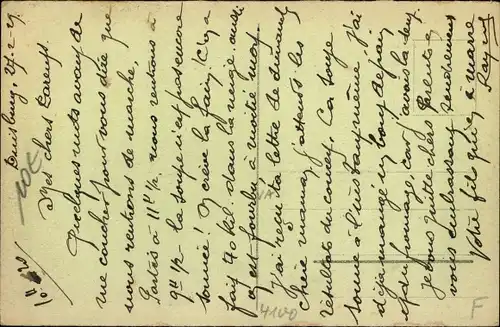 Duisburg, 27-2-
Mes chers Parents
Quelques mots avant de
me coucher pour vous dire que
nous rentrons de marche,
Partis à 11h 1/2, nous rentrons à
9h 1/2 - la soupe n'est pas encore
sonnée! Je crève la faim!
fait 40 kil. dans la neige aussi
on est fourbu à moitié mort
J'ai reçu ta lettre de dimanche
Chère maman j'attends les
résultats du La soupe
sonne à l'instant même j'ai
déjà mangé un bout de pain
et du fromage, car j'avais la dent
Je vous quitte chers Parents
vous embrassant tendrement
Votre fils qui en a marre
Raymond
4100
F